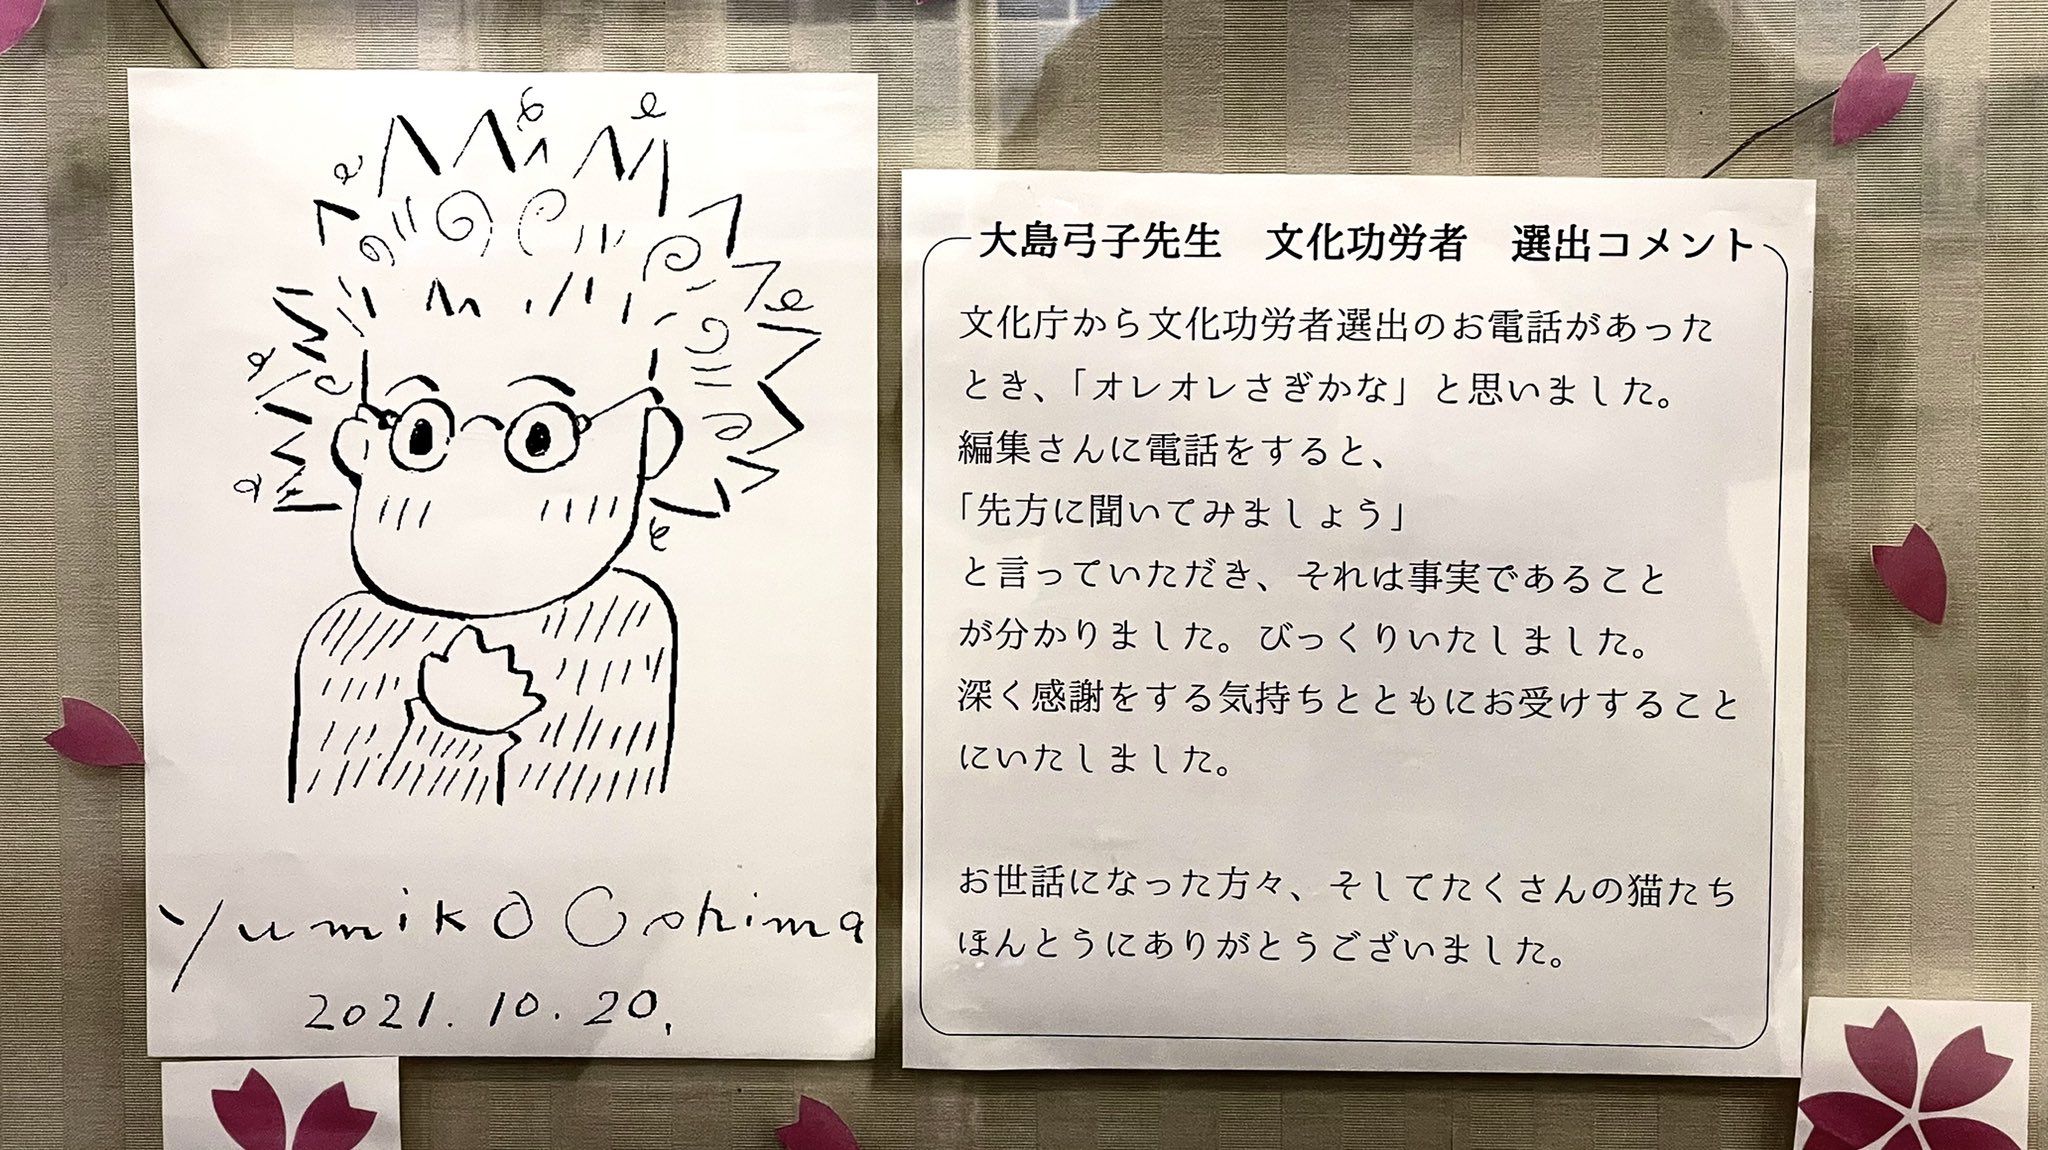 Yumiko Oshima
2021.10.20.
大島弓子先生　文化功労者　選出コメント
文化庁から文化功労者選出のお電話があった
とき、「オレオレさぎかな」と思いました。
編集さんに電話をすると、
「先方に聞いてみましょう」
と言っていただき、それは事実であること
が分かりました。びっくりいたしました。
深く感謝をする気持ちとともにお受けすること
にいたしました。
お世話になった方々、そしてたくさんの猫たち
ほんとうにありがとうございました。